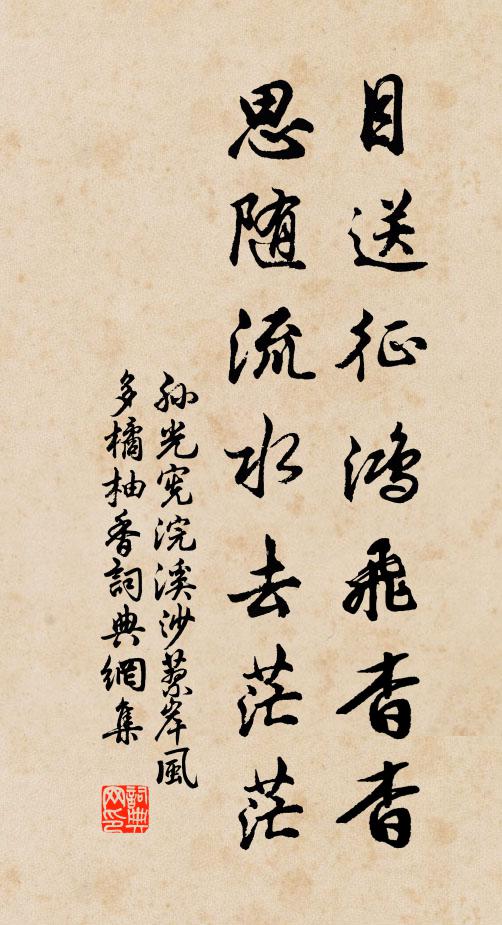 目送征鸿飛杳杳
思随流水去茫茫
孙光宪浣溪沙蓼岸風
多橘柚香詞典網集
詞典
网印